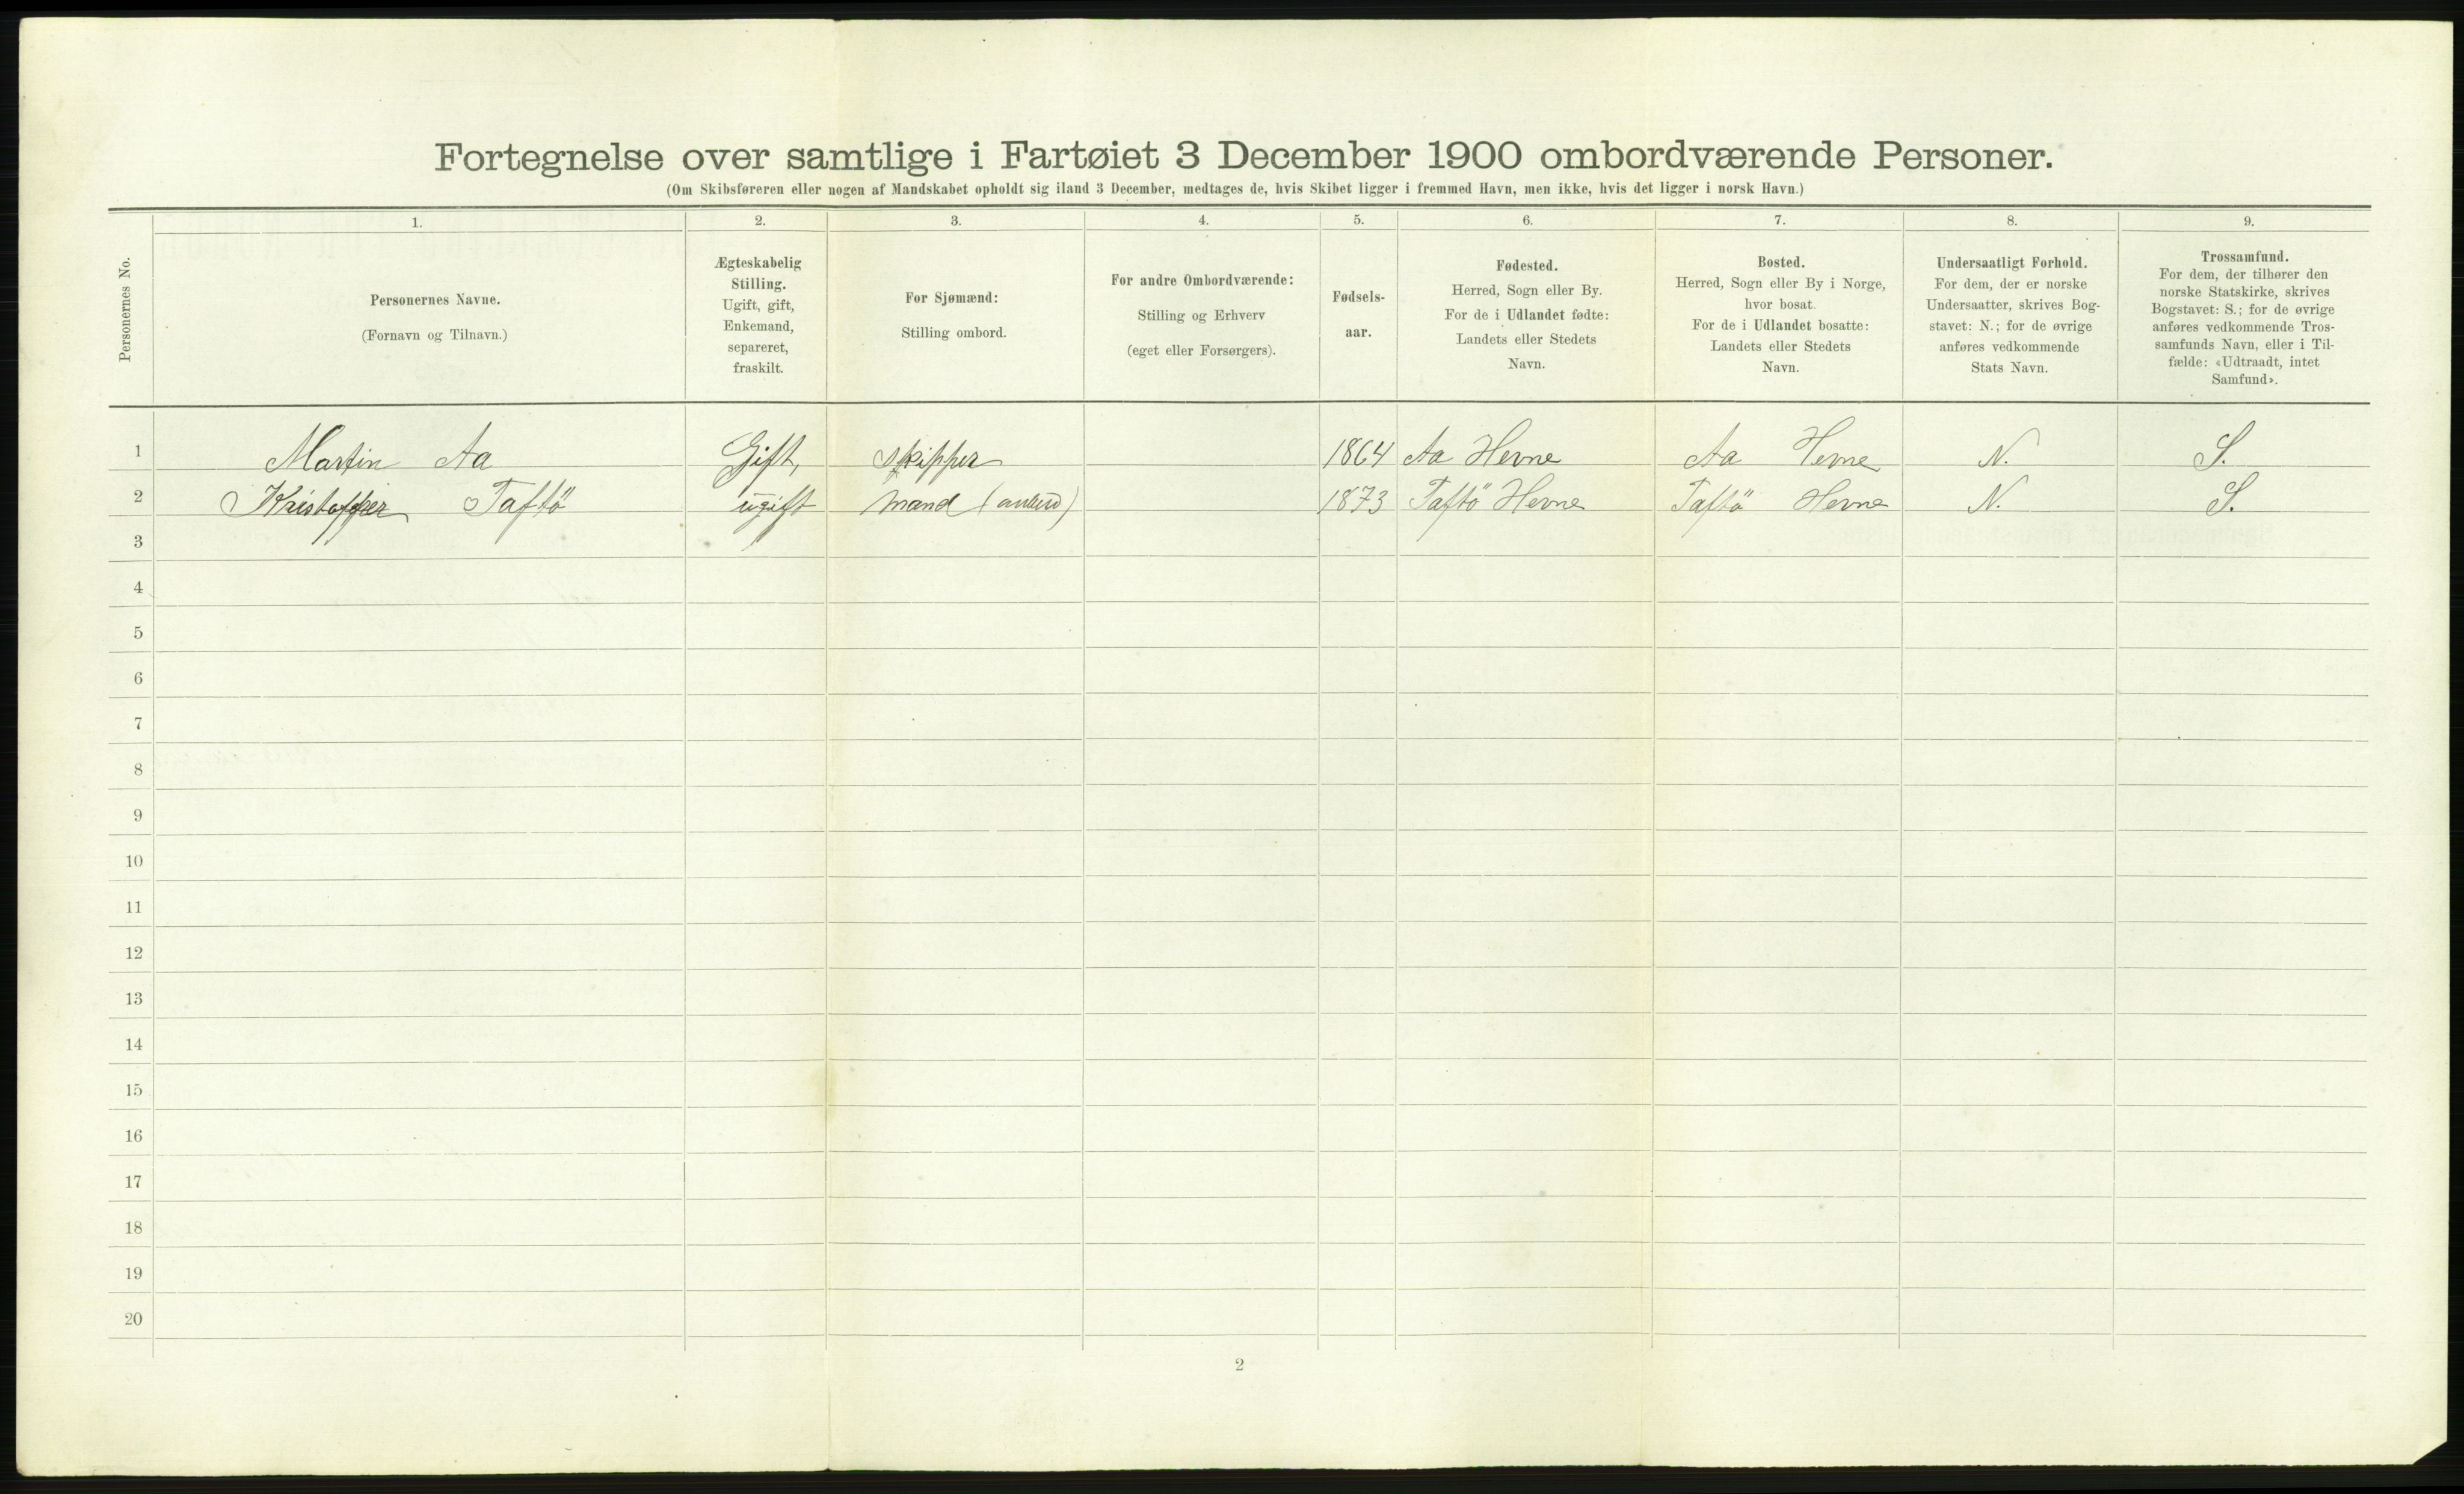 Fortegnelse over samtlige i Fartøiet 3 December 1900 ombordværende Personer.
(Om Skibsføreren eller nogen af Mandskabet opholdt sig iland 3 December, medtages de, hvis Skibet ligger i fremmed Havn, men ikke, hvis det ligger i norsk Havn.)
Personernes No.
1. 2. 3. 4. 5. 6. 7. 8. 9.
Personernes Navne.
(Fornavn og Tilnavn.)
Ægteskabelig
Stilling.
Ugift, gift,
Enkemand,
separeret,
fraskilt.
For Sjømænd:
Stilling ombord.
For andre Ombordværende:
Stilling og Erhverv
(eget eller Forsørgers).
Fødsels-
aar.
Fødested.
Herred, Sogn eller By.
For de i Udlandet fødte:
Landets eller Stedets
Navn.
Bosted.
Herred, Sogn eller By i Norge,
hvor bosat.
For de i Udlandet bosatte:
Landets eller Stedets
Navn.
Undersaatligt Forhold.
For dem, der er norske
Undersaatter, skrives Bog-
stavet: N.; for de øvrige
anføres vedkommende
Stats Navn.
Trossamfund.
For dem, der tilhører den
norske Statskirke, skrives
Bogstavet: S.; for de øvrige
anføres vedkommende Tros-
samfunds Navn, eller i Til-
fælde: «Udtraadt, intet
Samfund».
1 Martin Aa Gift, Skipper 1864 Aa Hevne Aa Hevne N. S.
2 Kristoffer Taftö ugift Mand 1873 Taftö Hevne Taftö Hevne N. S.
3
4
5
6
7
8
9
10
11
12
13
14
15
16
17
18
19
20
2